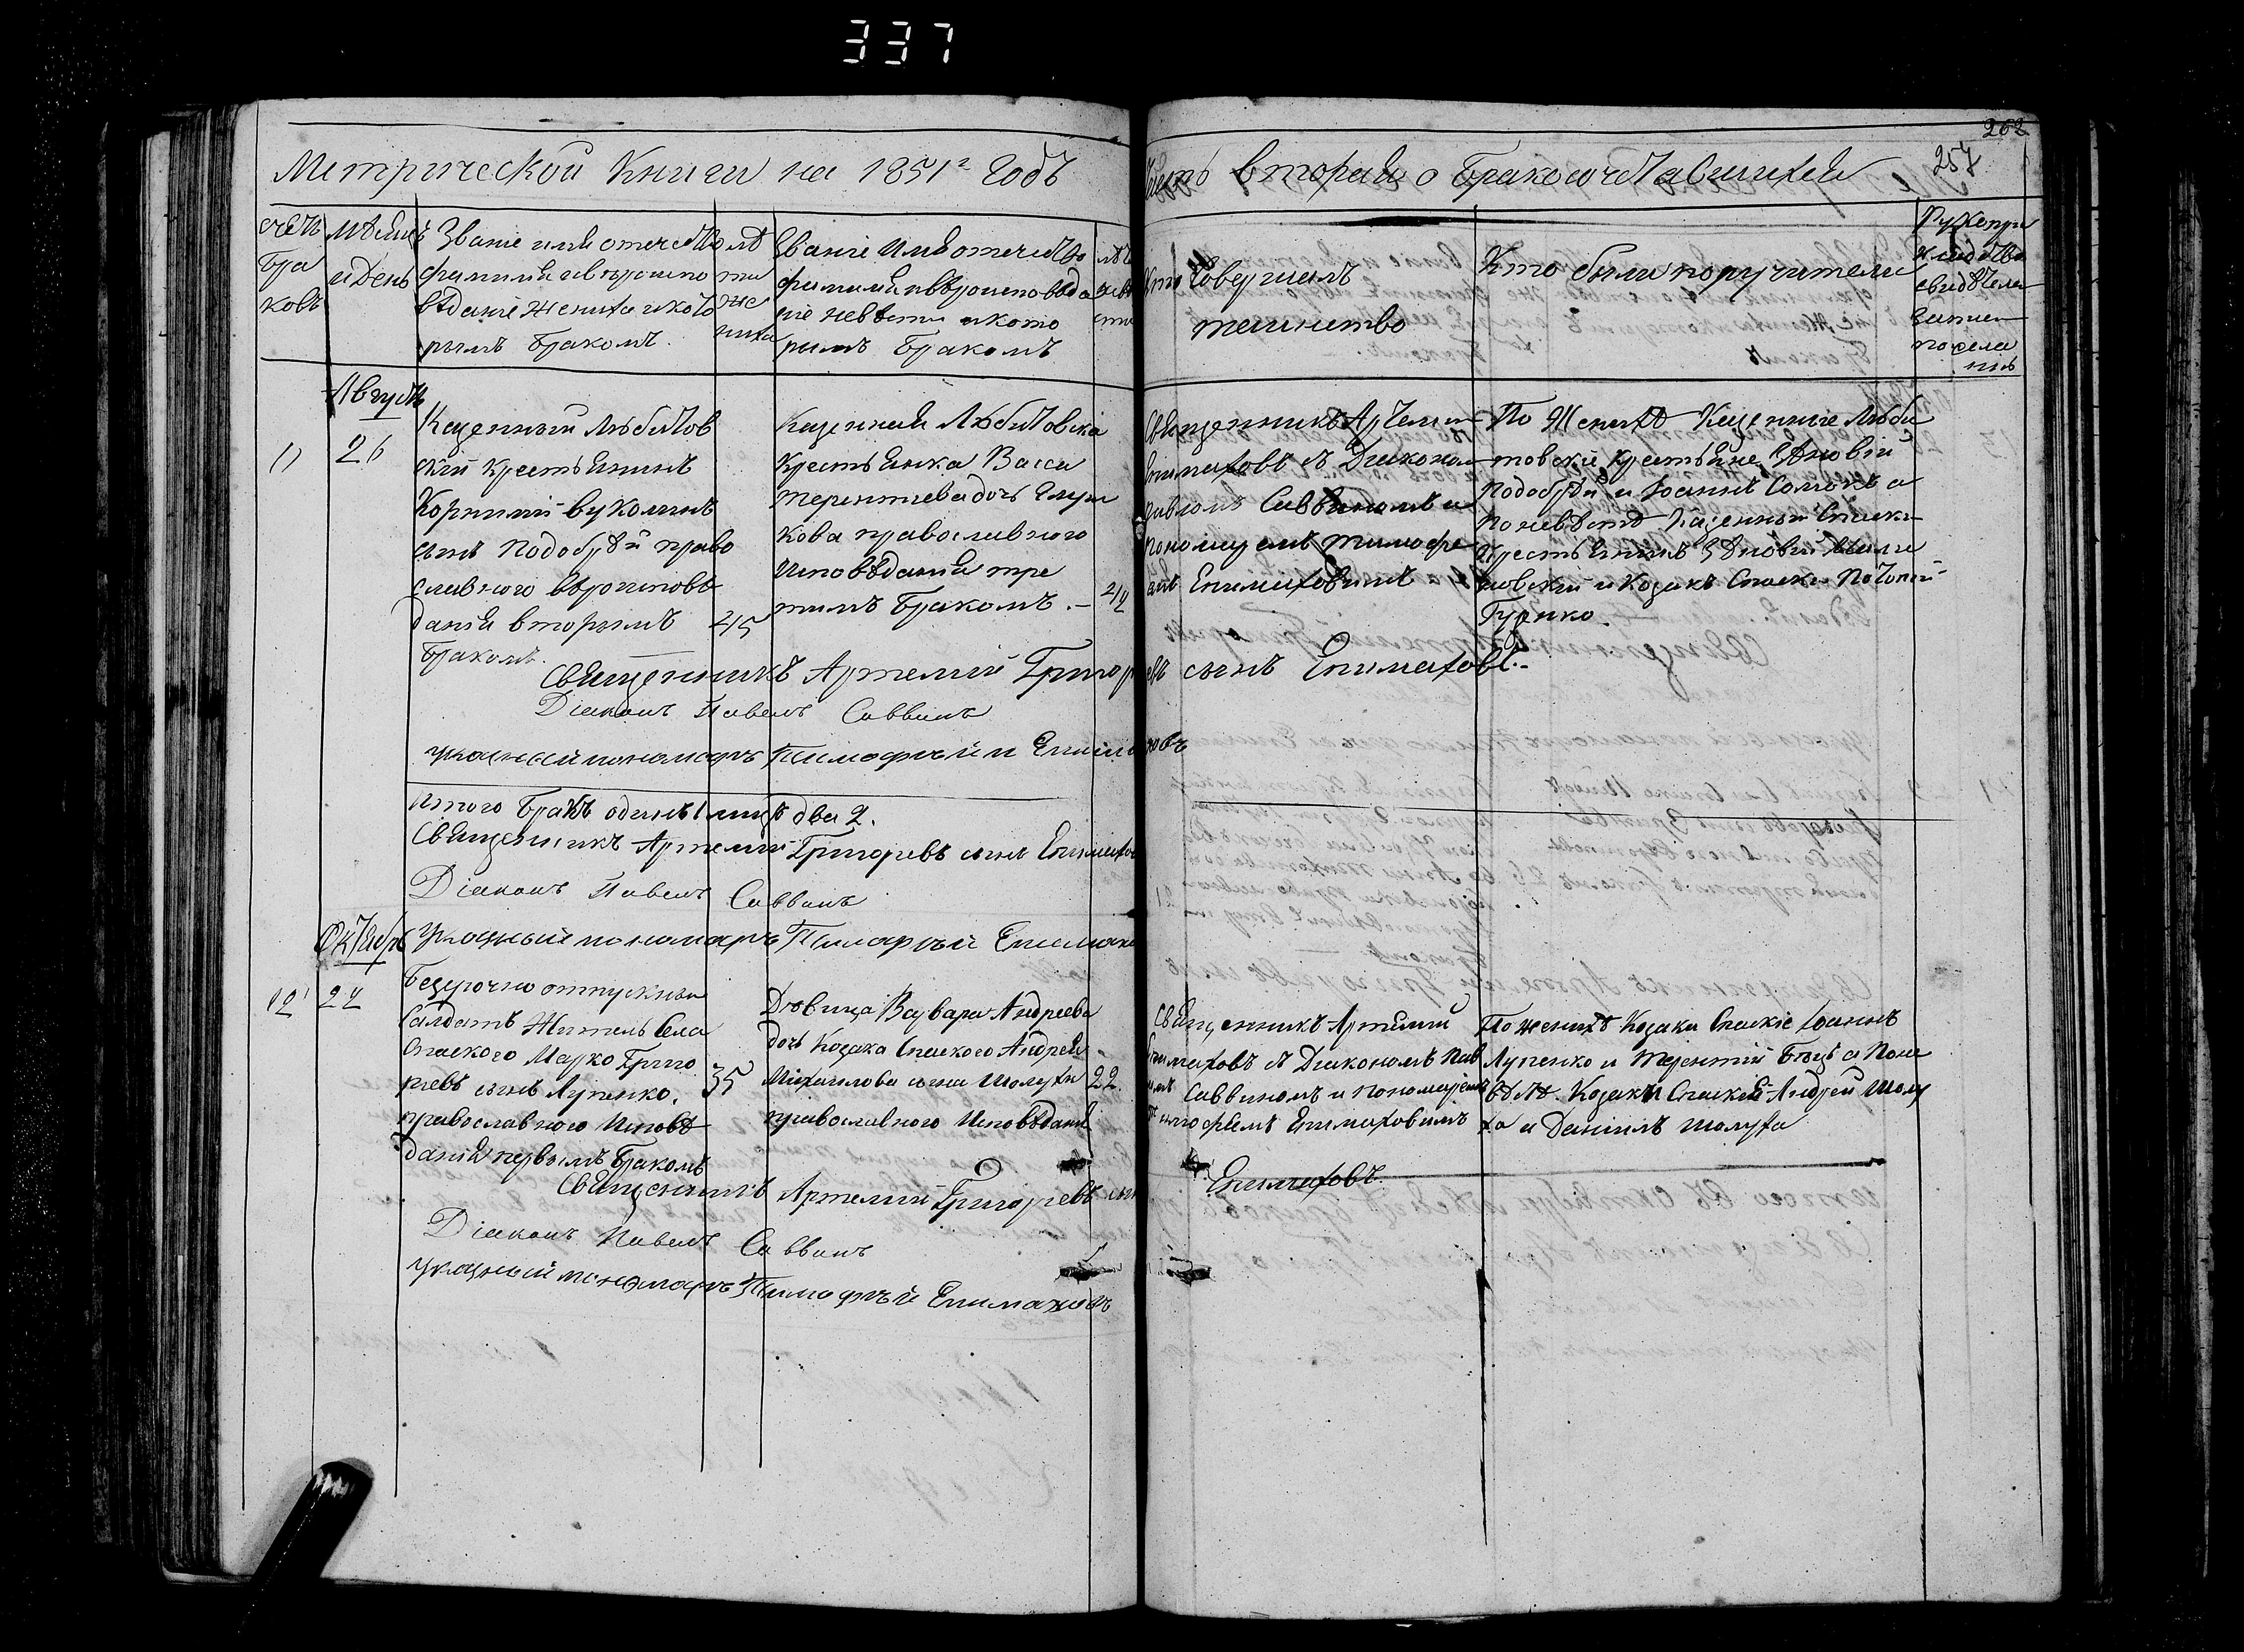 337
262
257
Метрической Книги на 1851г Годъ
Часть вторая о бракосочетавшихся
счетъ
бра
ковъ
мѣсяцъ
и день
Званіе имя отечество
фамилія и вѣроиспо
вѣданіе жениха и кото
рымъ бракомъ.
лѣ
та
же
ниха
Званіе имя отечество
фамилія и вѣроисповѣда
ніе невѣсты и кото
рымъ бракомъ
Кто совершалъ
таинство
Кто были поручители
Рукопри
кладство
свидѣтелей
записи
по жела
нію
Августъ
11
26
Казенный Любитов
скій крестьянинъ
Корнилій Вуколинъ
сынъ Подобрѣй право
славнаго вѣроисповѣ
данія вторымъ
бракомъ.
45
Казенная Любитовска
крестьянка Васса
Терентіева дочь
кова православного
исповѣданія тре
тимъ бракомъ.
42
Священникъ Артемій
Епимаховъ съ Діякономъ
Павломъ Саввиномъ и
пономаремъ Тимофе
емъ Епимаховимъ
По Женихѣ Казенные Люби
товскіе крестьяне Зѣновій
Подобрѣй и Іоаннъ а
по невѣстѣ Казенный Спаски
крестьянинъ Зѣновій
и Козакъ Спаски
Гуренко.
Священникъ Артемій Григоревъ сынъ Епимаховъ.
Діаконъ Павелъ Саввинъ
указный пономарь Тимофѣй Епимаховъ
Итого бракъ одинъ 1 лицъ два 2.
Священникъ Артемій Григоревъ сынъ Епимахов
Діаконъ Павелъ Саввинъ
Указный пономарь Тимофѣй Епимахо
Октябрь
12
24
Безсрочно отпускный
Салдатъ Житель Села
Спаского Марко Григо
ріевъ сынъ Лупенко.
православного Исповѣ
данія первымъ бракомъ
35
Дѣвица Варвара Андреева
дочь Козака Спаского Андрея
Михаилова сына Шолухи
православного Исповѣданія
22.
Священникъ Артемій
Епимаховъ съ Діякономъ Пав
ломъ Саввиномъ и пономаремъ
Тимофѣемъ Епимаховимъ
По женихѣ Козаки Спаскіе Іоаннъ
Лупенко и Терентій Бѣцъ а по не
вѣстѣ. Козаки Спаскіе Андрей Шолу
ха и Даніилъ Шолуха
Священникъ Артемій Григоревъ сынъ Епимаховъ.
Діаконъ Павелъ Саввинъ
указный пономарь Тимофѣй Епимаховъ